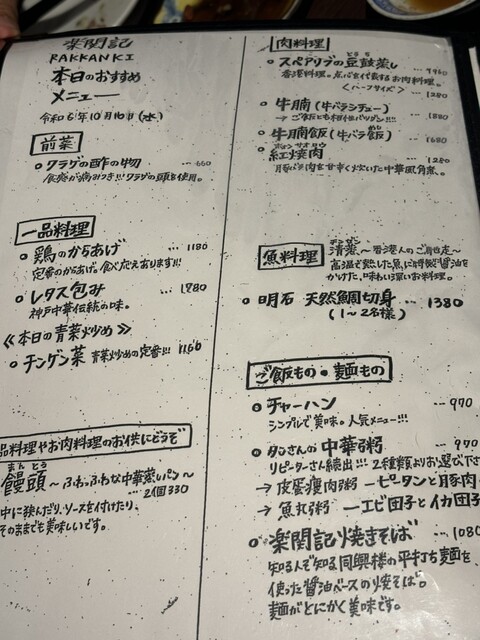 楽関記
RAKKANKI
本日のおすすめ
メニュー
令和6年10月16日(水)
前菜
クラゲの酢の物 … 660
食感が病みつき!!!クラゲの頭を使用。
一品料理
鶏のからあげ … 1180
定番のからあげ。食べ応えあります!!!
レタス包み … 1780
神戸中華伝統の味。
≪本日の青菜炒め≫
チンゲン菜 青菜炒めの定番!!!
品料理やお肉料理のお供にどうぞ
まん とう
饅頭 ～ふわっふわな中華蒸しパン～
… 2個330
中に挟んだり、ソースを付けたり、
そのままでも美味しいです。
肉料理
スペアリブの豆鼓蒸し
香港料理。点心を代表するお肉料理。
＜ハーフサイズ＞ … 1280
牛腩(牛バラシチュー) … 1880
→ご飯とも相性バツグン!!!
牛腩飯(牛バラ飯) … 1680
紅焼肉 … 1280
豚バラ肉を甘辛く炊いた中華風角煮。
魚料理
清蒸 ～香港人のご馳走～
高温で熱した魚に特製醤油を
かけた、味わい深いお料理。
明石 天然鯛切身 … 1380
(1～2名様)
ご飯もの・麺もの
チャーハン … 970
シンプルで美味。人気メニュー!!!
タンさんの中華粥 … 970
リピーターさん続出!!! 2種類よりお選び下さ
→ 皮蛋瘦肉粥 ―ピータンと豚肉
→ 魚丸粥 ―エビ団子とイカ団子
楽関記焼きそば … 1080
知る人ぞ知る同興楼の平打ち麺を
使った醤油ベースの焼そば。
麺がとにかく美味です。